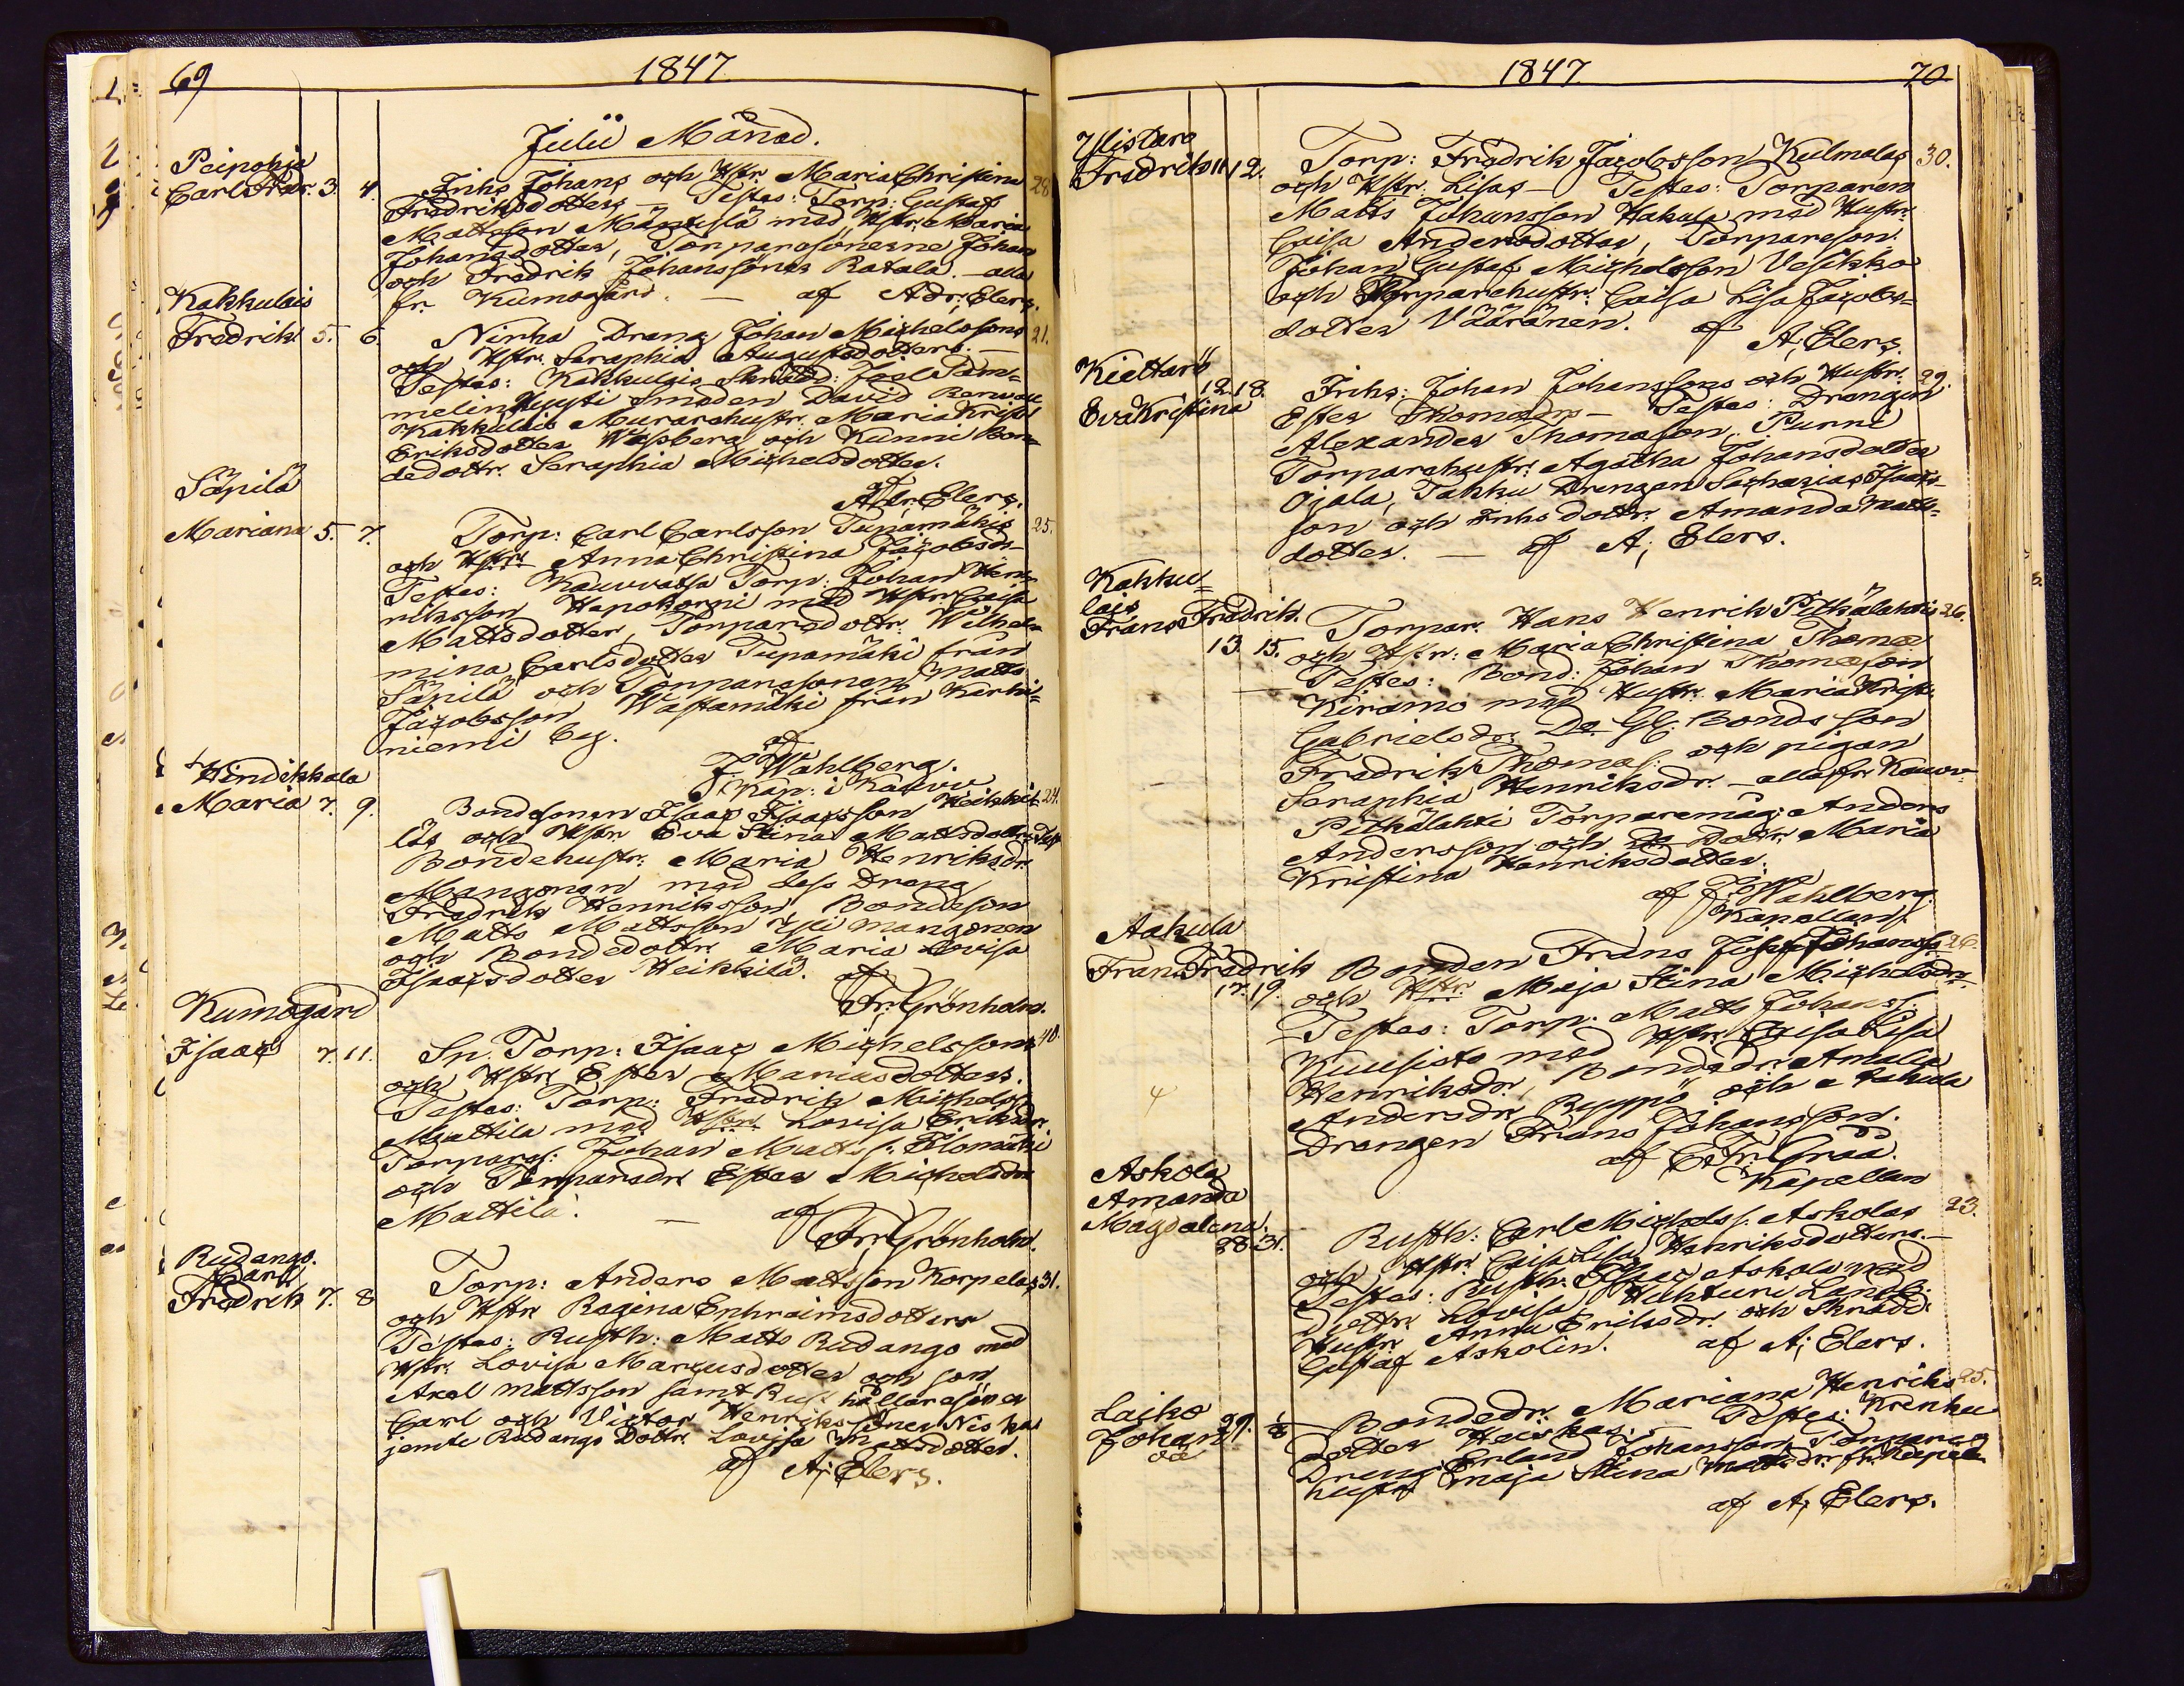 69
1847
Julii Månad.
Peipohja
Carl Fredr. 3. 4. Inhs Johans och Hstr Maria Christina 28
Fredriksdotters — Testes: Torp: Gustaf
Mattsson Mäntilä med Hstr. Maria
Johansdotter, Torparesönerne Johan
och Fredrik Johanssöner Ratala. — alla
fr. Kumogård. — af Adr: Elers.
Kakkulais
Fredrik 5. 6. Nirha Dräng Johan Michelssons 21.
och Hstr. Seraphia Augustsdotters. —
Testes: Kakkulais Skrädd: Joel Tam-
melin Hyyti Smeden David
Kakkulais Murarehustr. Maria Krist
Eriksdotter Wasberg och Kunni Bon-
dedottr. Seraphia Michelsdotter.
af Adr: Elers.
Säpilä
Mariana 5. 7. Torp: Carl Carlsson Tupamäkis 25.
och Hstr: Anna Christina Jacobsdr —
Testes: Kauvatsa Torp: Johan Hen-
riksson Hapokorpi med Hstr Caisa
Mattsdotter, Torparedottr. Wilhel-
mina Carlsdotter Tupamäki från
Säpilä och Torparesonen Matts
Jacobsson Wästamäki från Karhi-
niemi by.
af
J: Wahlberg.
Kap: i Kauv
Hindikkala
Maria 7. 9. Bondesonen Isaac Isaacsson Heikki- 24.
läs och Hstr. Eva Stina Mattsdotters Test
Bondehustr: Maria Henriksdr
Mangonen med dess Dräng
Fredrik Henriksson Bondeson
Matts Mattsson Yli mangonen
och Bondedottr. Maria Lovisa
Isaacsdotter Heikkilä. af
Fr: Grönholm.
Kumogård
Isaac 7. 11. Sp. Torp: Isaac Michelssons 40.
och Hstr Ester Mariasdotters.
Testes: Torp: Fredrik Michelss
Mattila med Hstr. Lovisa Eriksdr.
Torpares: Johan Matts s. Elomäki
och Torparedr Ester Michelsdr
Mattila. — af
Fr: Grönholm.
Rudango.
Carl
Fredrik 7. 8 Torp: Anders Mattsson Korpelas 31.
och Hstr Regina Enhraimsdotters
Testes: Rusth: Matts Rudango med
Hstr. Lovisa Marcusdotter och son
Axel Mattsson samt Rust hållaresöner
Carl och Victor Henrikssöner Niska
jemte Rudango Dottr. Lovisa Mattsdotter.
af A; Elers.
1847
70
Ylistaro
Fredrik 11 12. Torp: Fredrik Jacobsson Kulmalas 30.
och Hstr. Lisas — Testes: Torparen
Matts Johansson Hakula med Hustr.
Caisa Andersdotter, Torpareson
Johan Gustaf Michelsson Vesikko
och Torparehustr. Caisa Lisa Jacobs-
dotter Vääränen. af
A; Elers.
Kiettare
12 18.
Eva Kristina
Inhs: Johan Johanssons och Hustr. 29.
Ester Thomædrs — Testes: Drängen
Alexander Thomasson, Punni
Torparehustr. Agatha Johansdotter
Ojala, Takku Drengen Sacharias Isaacs-
son och Inhs dottr. Amanda Matts-
dotter. — af A; Elers.
Kakku-
lais
Frans Fredrik.
13. 15. Torpar. Hans Henrik Pitkälahtis 26.
och Hstr: Maria Christina Thomæ
Testes: Bond: Johan Thomæson
Kiramo med Hustr. Maria Krist.
Gabrielsdr. Do Gl: Bonds son
Fredrik Thomas: och pigan
Seraphia Henriksdr. — alla fr. Kauv:
Pitkälahti Torparemåg: Anders
Andersson och Do Dottr. Maria
Kristina Henriksdotter.
af J: Wahlberg.
Kapellan.
Aakula
Frans Fredrik
17. 19. Bonden Frans Josef Johanss 26.
och Hstr Maja Stina Michelsdr.
Testes: Torp: Matts Johans s.
Kuusisto med Hstr. Caisa Lisa
Henriksdr, Bondedr Amalia
Andersdr Ryyppö och Aakula
Drengen Frans Johansson.
af C: Fr: Graa.
Kapellan
Askola
Amanda
Magdalena.
28. 31. Rusth: Carl Michels s. Askolas 23.
och Hstr. Caisa Lisa Henriksdotters. —
Testes: Rusth: Isaac Askola med
dottr. Lovisa, Huhturi Landb.
Hustr. Anna Eriksdr. och Skrädd:
Gustaf Askolin. af A; Elers.
Laiko
Johan 29.
oä
Bondedr: Mariana Henriks 25.
dotter Heiskas. — Testes: Krenku
Dreng: Erland Johansson, Torpare
hustr Maja Stina Mattsdr
af A; Elers.